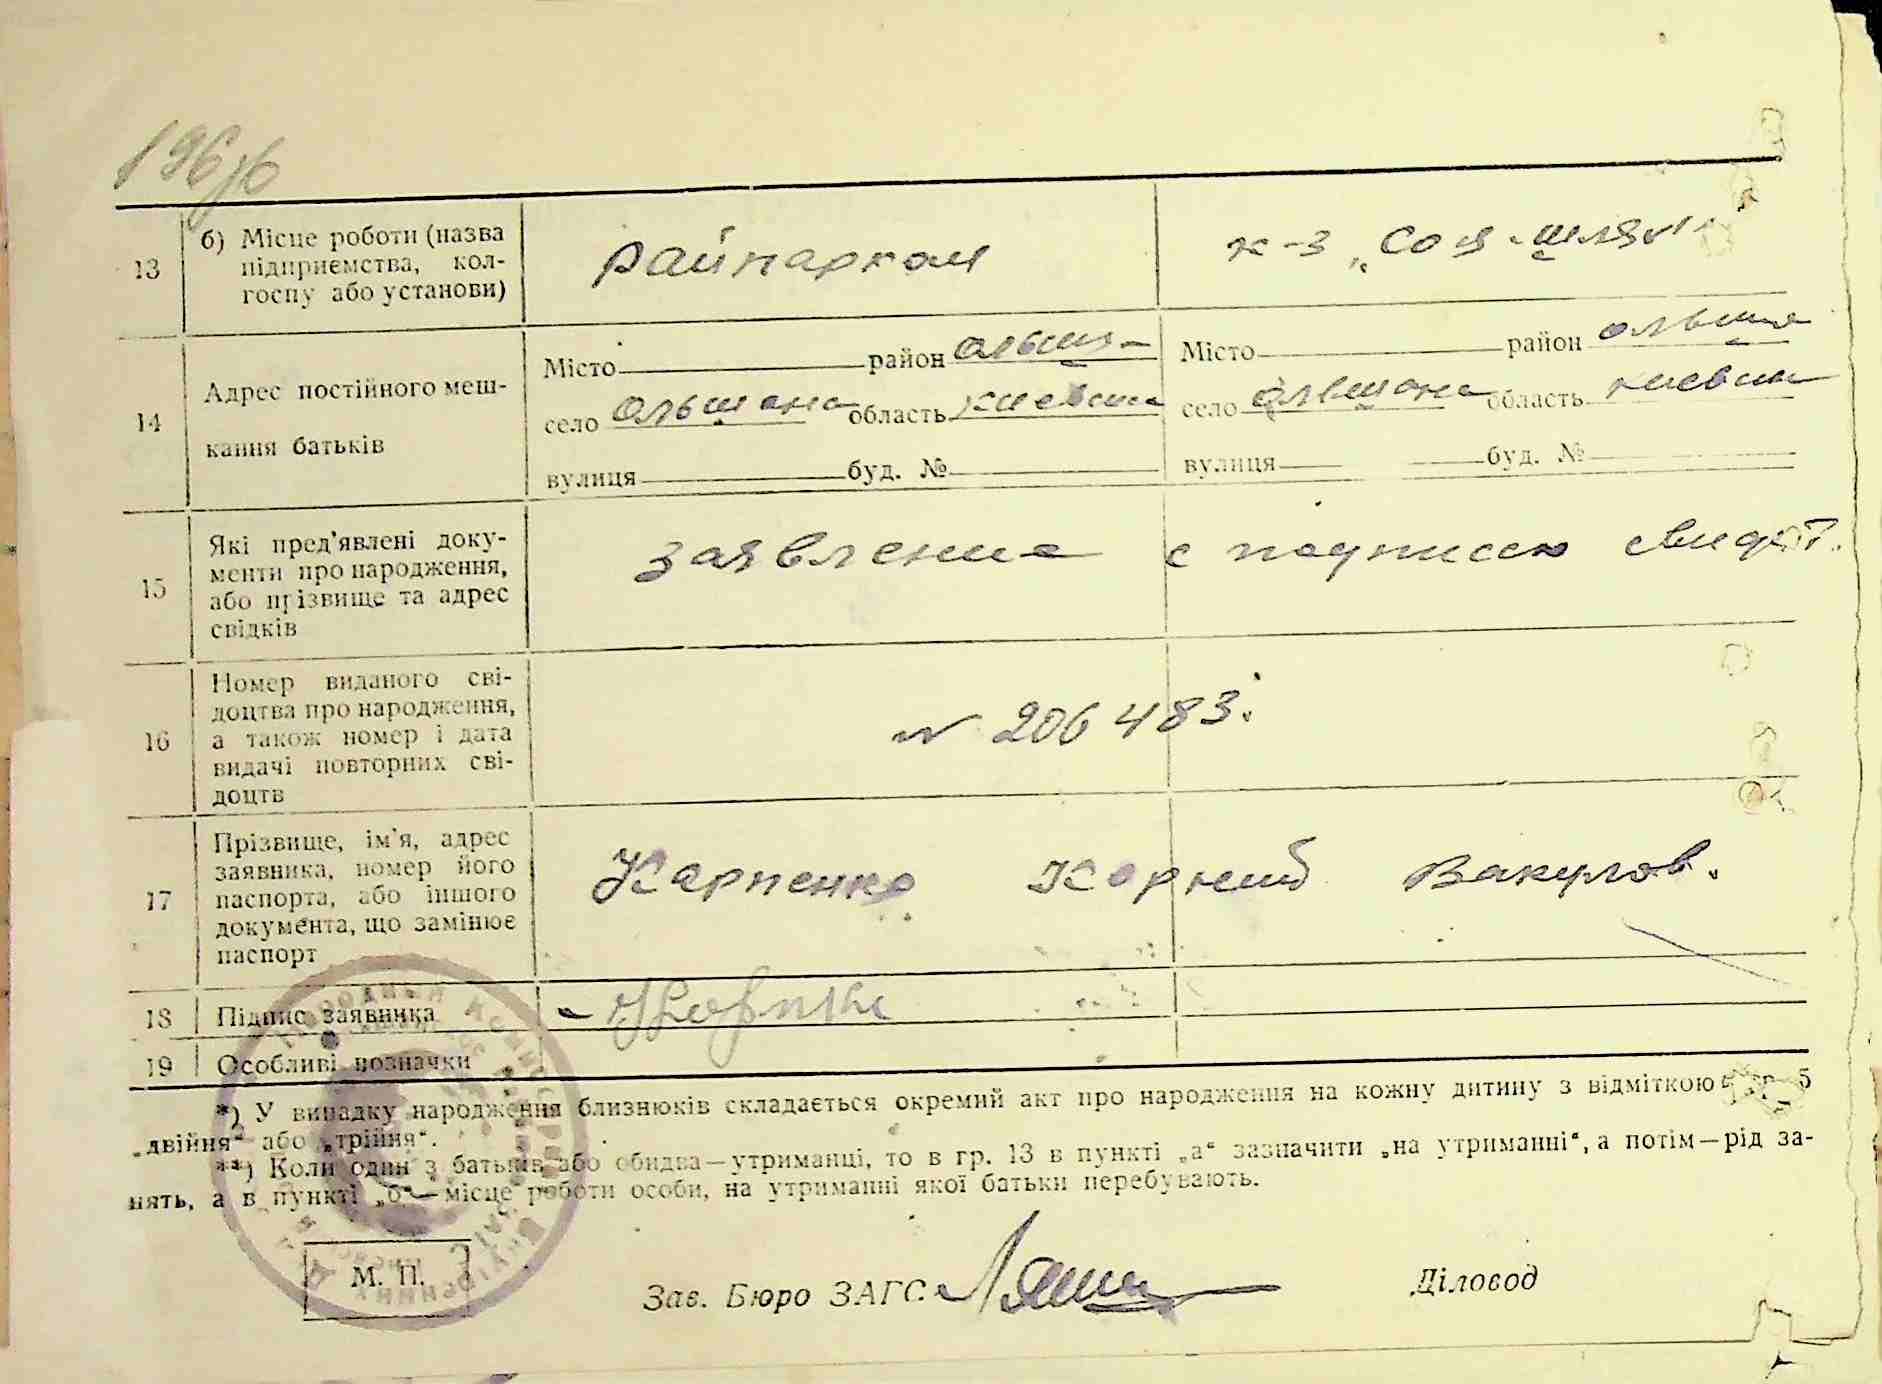 196/6
13
б) Місце роботи (назва
підприємства, кол-
госпу або установи)
Райпартком
к-з „Соц-шлях“
14
Адрес постійного меш-
кання батьків
Місто район Ольшан
село Ольшана область Киевск
вулиця буд. №
Місто район Ольшан
село Ольшана область Киевск
вулиця буд. №
15
Які пред'явлені доку-
менти про народження,
або прізвище та адрес
свідків
заявление с подписью свидет.
16
Номер виданого сві-
доцтва про народження,
а також номер і дата
видачі повторних сві-
доцтв
№ 206483.
17
Прізвище, ім'я, адрес
заявника, номер його
паспорта, або іншого
документа, що замінює
паспорт
Карпенко Корний Вакулов.
18
Підпис заявника
19
Особливі позначки
*) У випадку народження близнюків складається окремий акт про народження на кожну дитину з відміткою в гр. 5
„двійня“ або „трійня“.
**) Коли один з батьків або обидва—утриманці, то в гр. 13 в пункті „а“ зазначити „на утриманні“, а потім—рід за-
нять, а в пункті „б“—місце роботи особи, на утриманні якої батьки перебувають.
М. П.
Зав. Бюро ЗАГС
Діловод